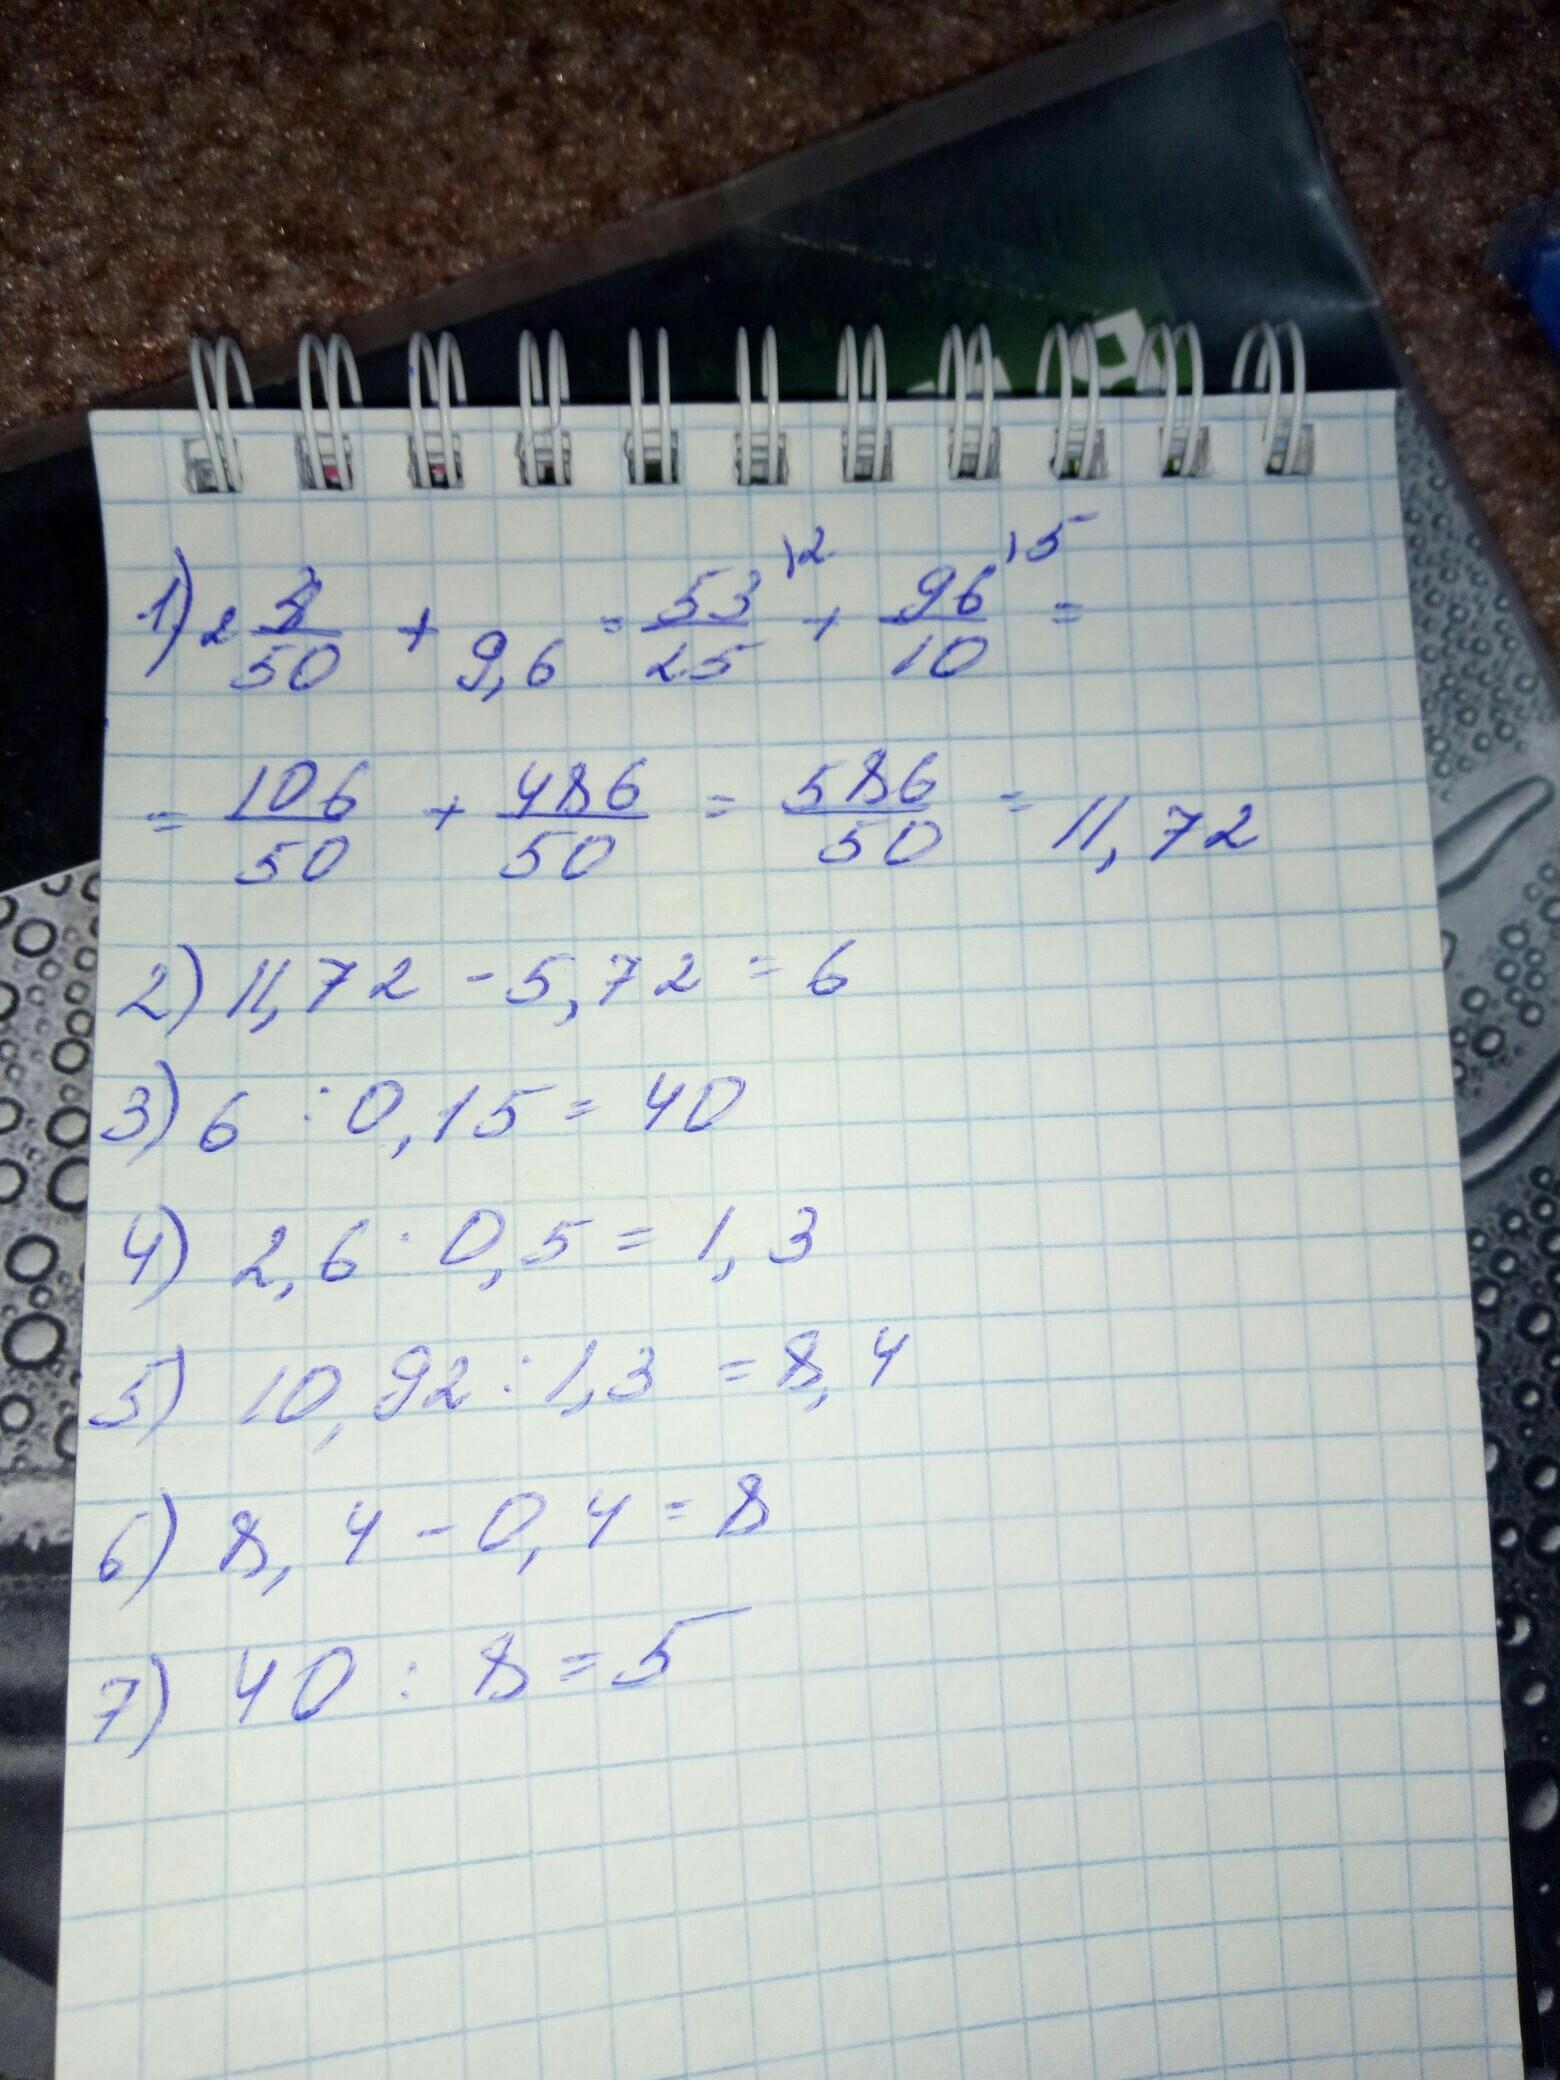 1) 2 3/50 + 9,6 = 53/25 \2 + 96/10 \5 =
= 106/50 + 486/50 = 586/50 = 11,72
2) 11,72 - 5,72 = 6
3) 6 : 0,15 = 40
4) 2,6 · 0,5 = 1,3
5) 10,92 : 1,3 = 8,4
6) 8,4 - 0,4 = 8
7) 40 : 8 = 5